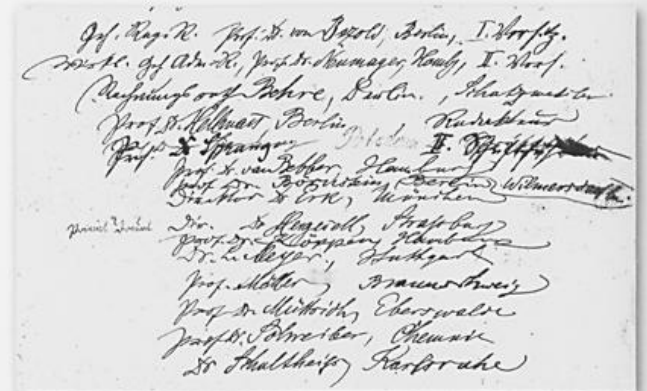 Geh. Reg. R. Prof. Dr. von Bezold, Berlin, I. Vorsitz.
Wirkl. Geh. Adm. R., Prof. Dr. Neumayer, Hambg, II. Vors.
Rechnungsrath Bohre, Berlin., Schatzmeister
Prof. Dr. Hellmann, Berlin Redakteur
Prof. Dr. Sprung Potsdam II. Schriftf
Prof. Dr. van Bebber, Hamburg
Prof. Dr. Börnstein, Berlin, Wilmersdorf
Direktor Dr. Erk, München
Dir. Dr. Hergesell, Straßburg
Prof. Dr. Köppen, Hamburg
Dr. L. Meyer, Stuttgart
Prof. Möller, Braunschweig
Prof. Dr. Müttrich, Eberswalde
Prof. Dr. Schreiber, Chemnitz
Dr. Schultheiss, Karlsruhe